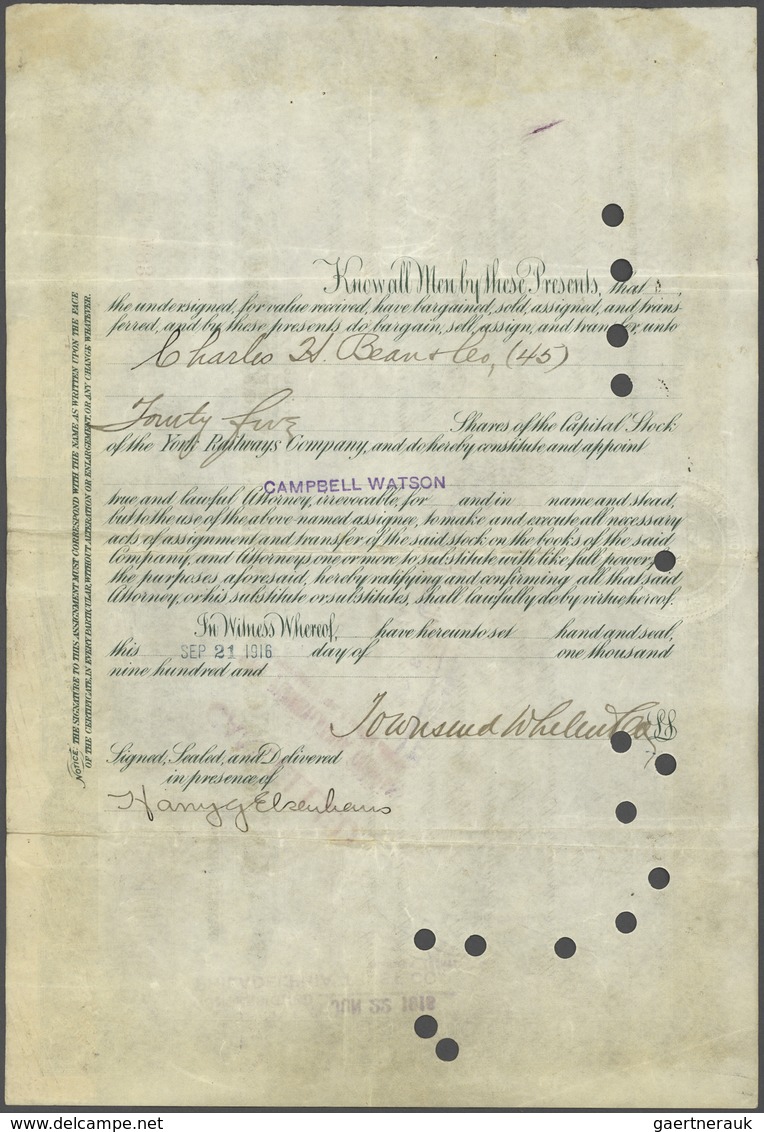 Know all Men by these Presents, that
the undersigned, for value received, have bargained, sold, assigned, and trans-
ferred, and by these presents do bargain, sell, assign, and transfer, unto
Charles H. Bean & Co, (45)
Fourty five Shares of the Capital Stock
of the York Railways Company, and do hereby constitute and appoint
CAMPBELL WATSON
true and lawful Attorney, irrevocable, for and in name and stead,
but to the use of the above named assignee, to make and execute all necessary
acts of assignment and transfer of the said stock on the books of the said
Company, and Attorneys one or more to substitute with like full power,
the purposes aforesaid, hereby ratifying and confirming all that said
Attorney, or his substitute or substitutes, shall lawfully do by virtue hereof.
In Witness Whereof, have hereunto set hand and seal,
this SEP 21 1916 day of one thousand
nine hundred and
Townsend Whelen & Co LS
Signed, Sealed, and Delivered
in presence of
Harry G Elsenhans
NOTICE. THE SIGNATURE TO THIS ASSIGNMENT MUST CORRESPOND WITH THE NAME AS WRITTEN UPON THE FACE
OF THE CERTIFICATE, IN EVERY PARTICULAR, WITHOUT ALTERATION OR ENLARGEMENT, OR ANY CHANGE WHATEVER.
PHILADELPHIA
JUN 22 1918
delcampe.net
gaertnerauk